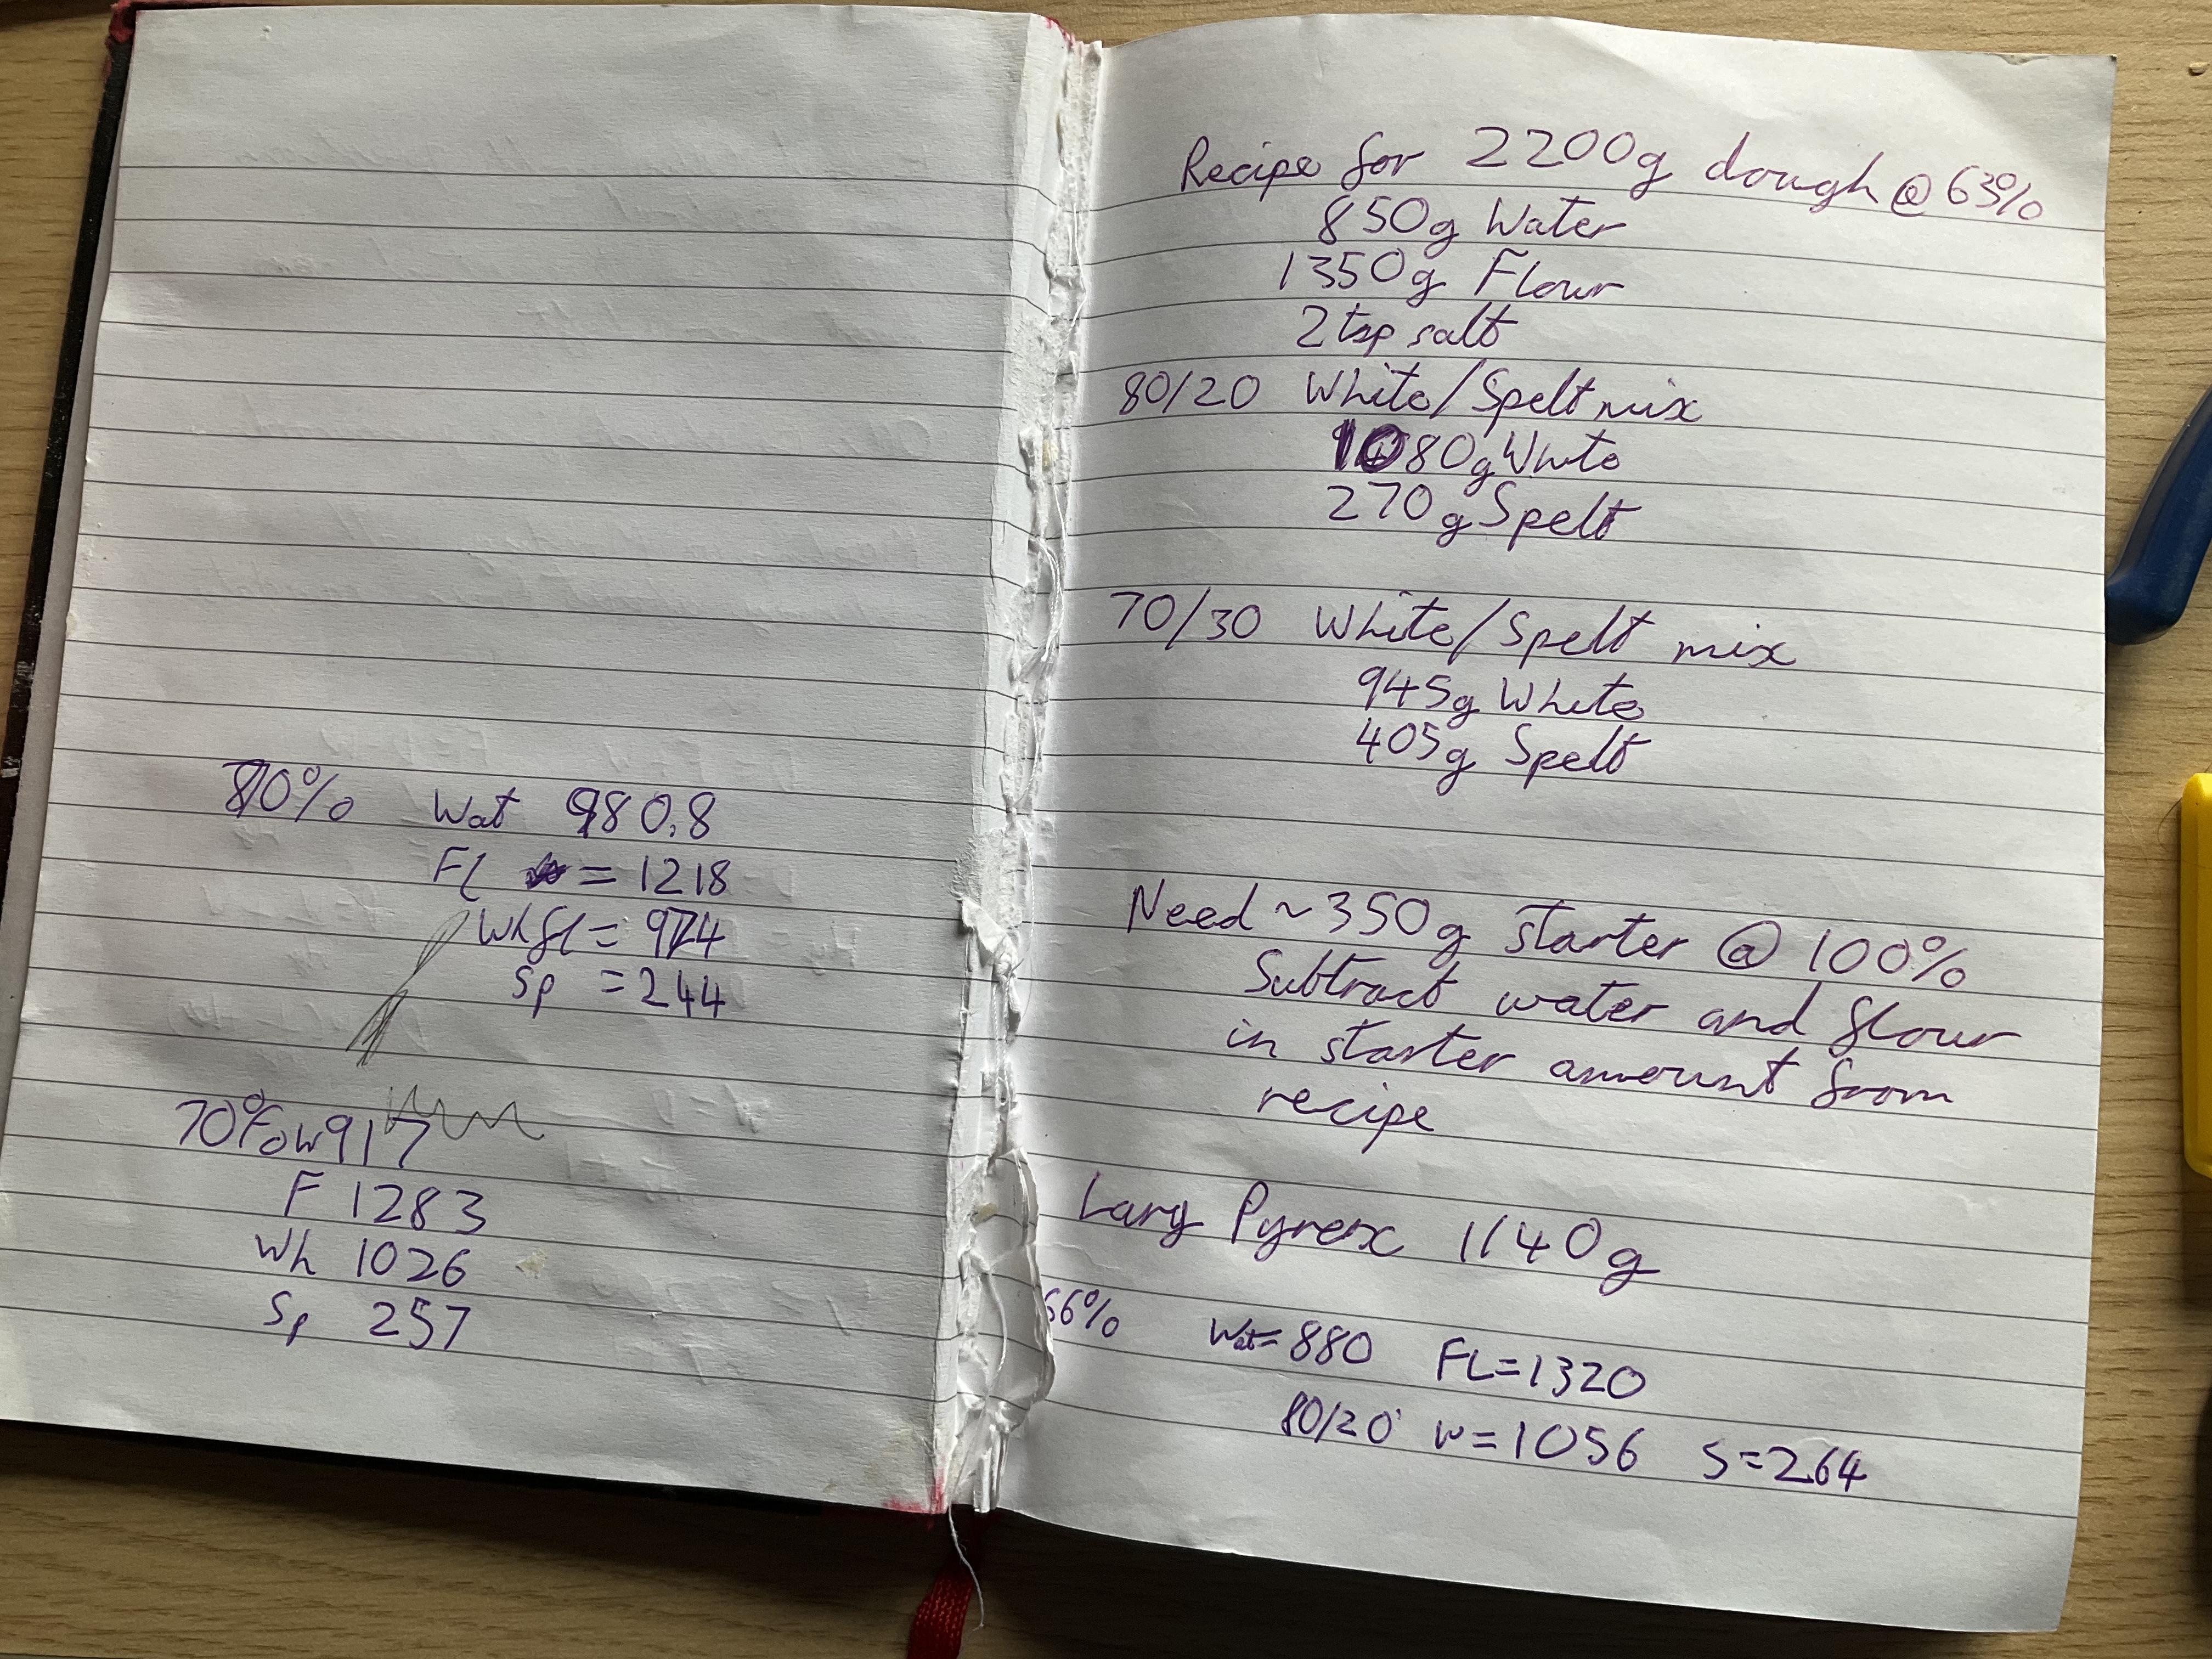 80% Wat 980.8
FL = 1218
Wh fl = 974
Sp = 244
70% W 917
F 1283
Wh 1026
Sp 257
Recipe for 2200g dough @ 63%
850g Water
1350g Flour
2 tsp salt
80/20 White/Spelt mix
1080g White
270g Spelt
70/30 White/Spelt mix
945g White
405g Spelt
Need ~350g starter @ 100%
Subtract water and flour
in starter amount from
recipe
Larg Pyrex 1140g
66% Wat= 880 FL=1320
80/20 W=1056 S=264